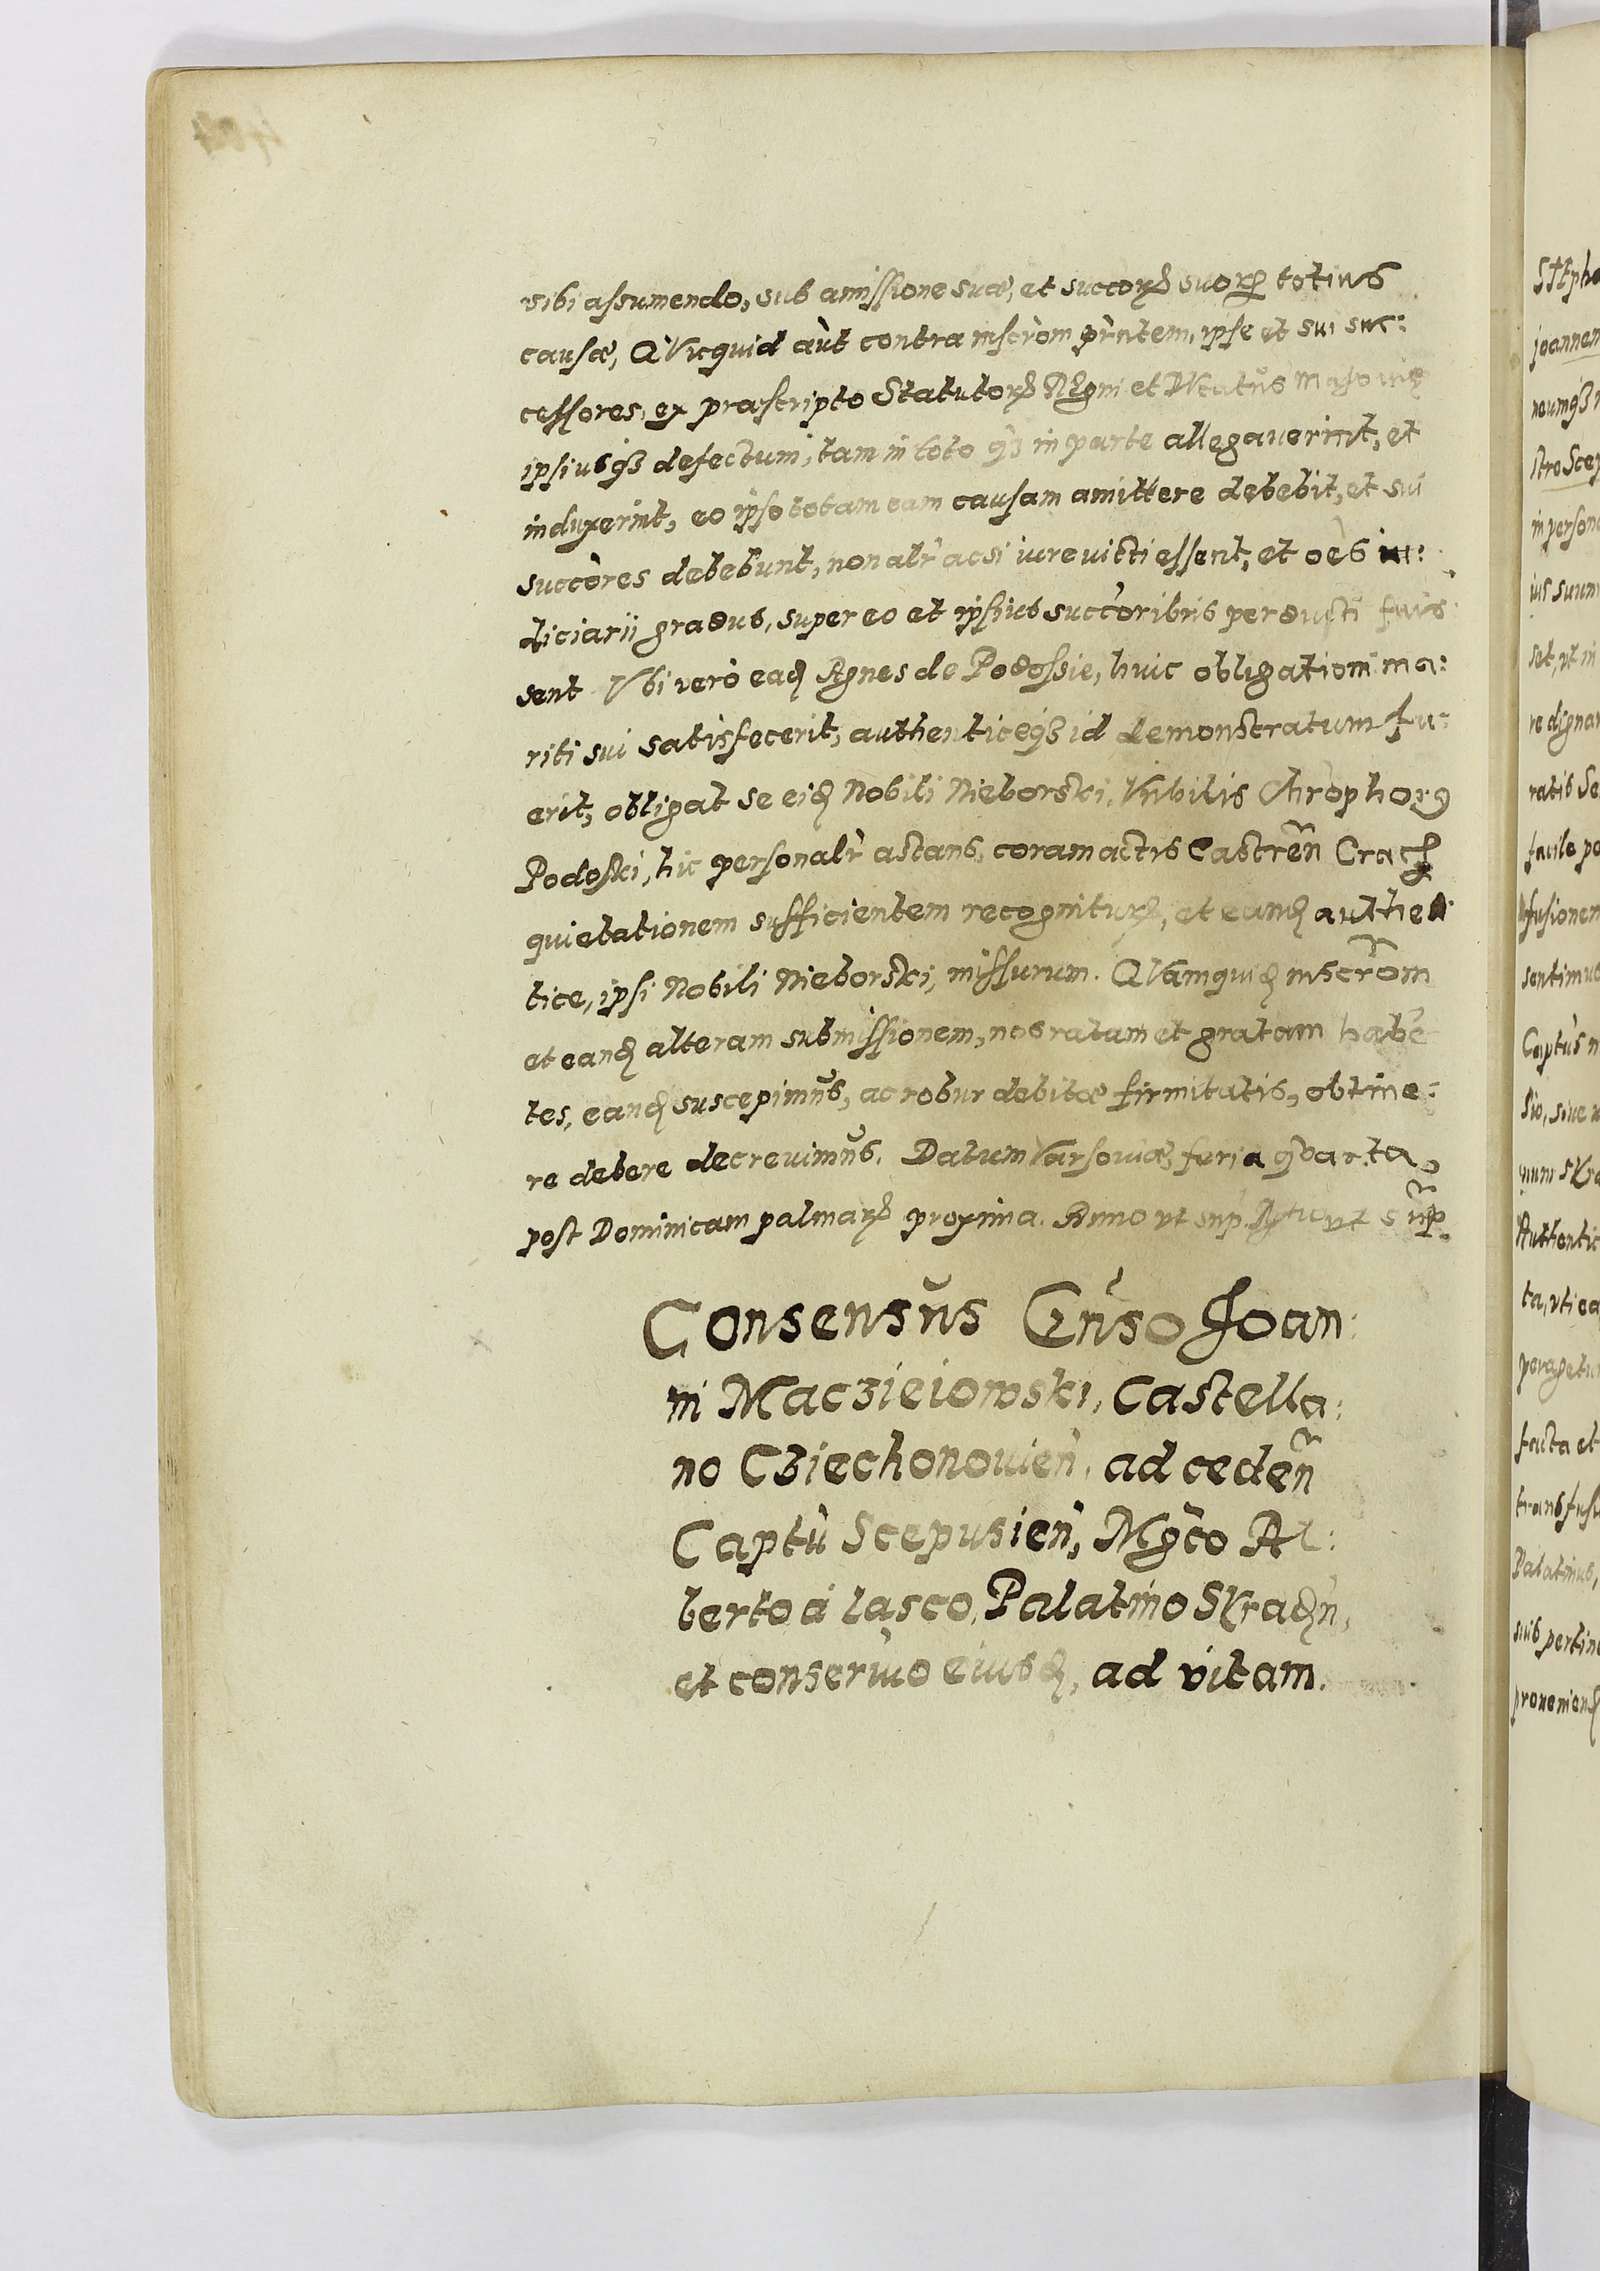 sibi assumendo, sub amissione suæ, et succorꝝ suorꝝ totius
causæ, Quicquid aut contra inscrōm prñtem, ipse et sui suc:
cessores, ex præscripto Statutorꝝ Regni et Ducatus Masouię
ipsiusqȝ defectum, tam in toto qȝ in parte allegauerint, et
induxerint, eo ipso totam eam causam amittere debebit, et sui
succōres debebunt, non alr̃ acsi iure victi essent, et oēs iu:
diciarii gradus, super eo et ipsius succoribus perducti fuis
sent Vbi vero eadꝫ Agnes de Podossie, huic obligationi ma:
riti sui satisfecerit, autheniceqȝ id demonstratum fu:
erit, obligat se eidꝫ Nobili Nieborski, Nobilis Chrõphorꝰ
Podoski, hic personalr̃ astans, coram actis Castreñ Cracꝫ
quietationem sufficientem recogniturꝝ, et eandꝫ authen
tice, ipsi Nobili Nieborski, missurum. Quamquidꝫ inscrōm
et eandꝫ alteram submissionem, nos ratam et gratam habē
tes, eandꝫ suscepimus, ac robur debitæ firmitatis, obtine:
re debere decreuimus. Datum Varsouiæ, feria quarta,
post Dominicam palmarꝝ proxima. Anno vt sup. Rꝫtio vt sup̃.
Consensus Gñso Joan:
ni Maczieiowski, Castella:
no Cziechonouieñ, ad cedeñ
Captũ Scepusieñ, Mgc̃o Al:
berto à Lasco, Palatino Siradꝫn,
et conseruo eiusdꝫ, ad vitam.
Stepha
joannem
stro Scep
in person
ius suum
set, vt in
re dignar
ratis Se
facile po
fusionem
sentimus
Captus n
sio, siue
Authentic
ta, vti ea
peragetur
facta et
transfus
Palatinus,
suis pertine